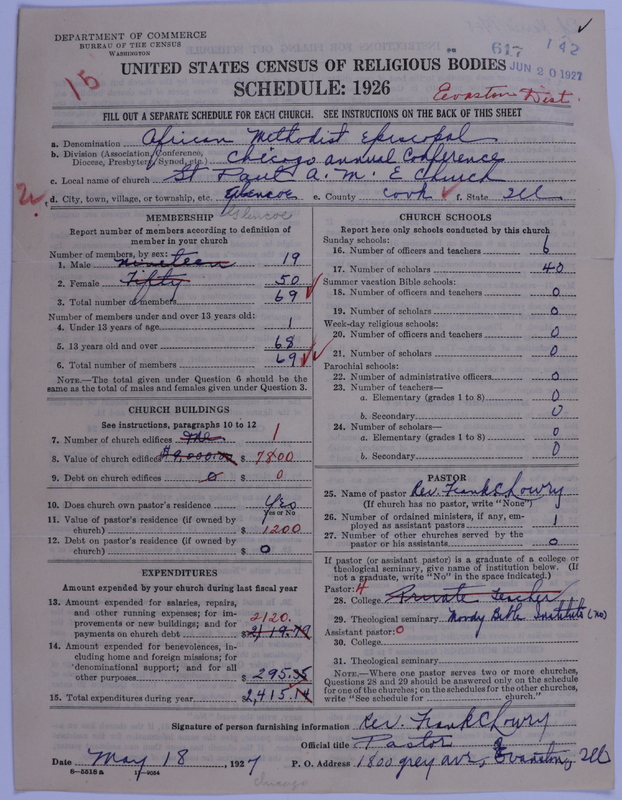 DEPARTMENT OF COMMERCE
BUREAU OF THE CENSUS
WASHINGTON
617 142
JUN 20 1927
15
UNITED STATES CENSUS OF RELIGIOUS BODIES
SCHEDULE: 1926
Evanston Dist.
FILL OUT A SEPARATE SCHEDULE FOR EACH CHURCH. SEE INSTRUCTIONS ON THE BACK OF THIS SHEET
a. Denomination African Methodist Episcopal
b. Division (Association, Conference, Diocese, Presbytery, Synod, etc.) Chicago annual Conference
c. Local name of church St Paul A. M. E Church
d. City, town, village, or township, etc. Glencoe e. County Cook f. State Ill
Glencoe
MEMBERSHIP
Report number of members according to definition of
member in your church
Number of members, by sex:
1. Male Nineteen 19
2. Female Fifty 50
3. Total number of members 69
Number of members under and over 13 years old:
4. Under 13 years of age 1
5. 13 years old and over 68
6. Total number of members 69
NOTE.—The total given under Question 6 should be the
same as the total of males and females given under Question 3.
CHURCH BUILDINGS
See instructions, paragraphs 10 to 12
7. Number of church edifices One 1
8. Value of church edifices $9,000.00 $ 7800
9. Debt on church edifices 0 $ 0
10. Does church own pastor's residence Yes
Yes or No
11. Value of pastor's residence (if owned by
church) $ 1200
12. Debt on pastor's residence (if owned by
church) $ 0
EXPENDITURES
Amount expended by your church during last fiscal year
13. Amount expended for salaries, repairs,
and other running expenses; for im-
provements or new buildings; and for 2120.
payments on church debt $ 2,119.79
14. Amount expended for benevolences, in-
cluding home and foreign missions; for
denominational support; and for all
other purposes $ 295.35
15. Total expenditures during year $ 2,415.14
CHURCH SCHOOLS
Report here only schools conducted by this church
Sunday schools:
16. Number of officers and teachers 6
17. Number of scholars 40
Summer vacation Bible schools:
18. Number of officers and teachers 0
19. Number of scholars 0
Week-day religious schools:
20. Number of officers and teachers 0
21. Number of scholars 0
Parochial schools:
22. Number of administrative officers 0
23. Number of teachers—
a. Elementary (grades 1 to 8) 0
b. Secondary 0
24. Number of scholars—
a. Elementary (grades 1 to 8) 0
b. Secondary 0
PASTOR
25. Name of pastor Rev. Frank C Lowry
(If church has no pastor, write "None")
26. Number of ordained ministers, if any, em-
ployed as assistant pastors 1
27. Number of other churches served by the
pastor or his assistants 0
If pastor (or assistant pastor) is a graduate of a college or
theological seminary, give name of institution below. (If
not a graduate, write "No" in the space indicated.)
Pastor:
28. College Private teacher
29. Theological seminary Moody Bible Institute (no)
Assistant pastor: 0
30. College
31. Theological seminary
NOTE.—Where one pastor serves two or more churches,
Questions 28 and 29 should be answered only on the schedule
for one of the churches; on the schedules for the other churches,
write "See schedule for church."
Signature of person furnishing information Rev. Frank C Lowry
Official title Pastor
Date May 18, 1927 P. O. Address 1800 grey ave, Evanston, Ill
8—5518 a 11—9054
chicago